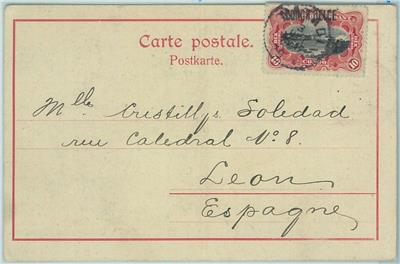 Carte postale.
Postkarte.
CONGO BELGE
10 10
CONGO
Mlle Cristillys Soledad
rue Catedral Nº 8.
Leon
Espagne